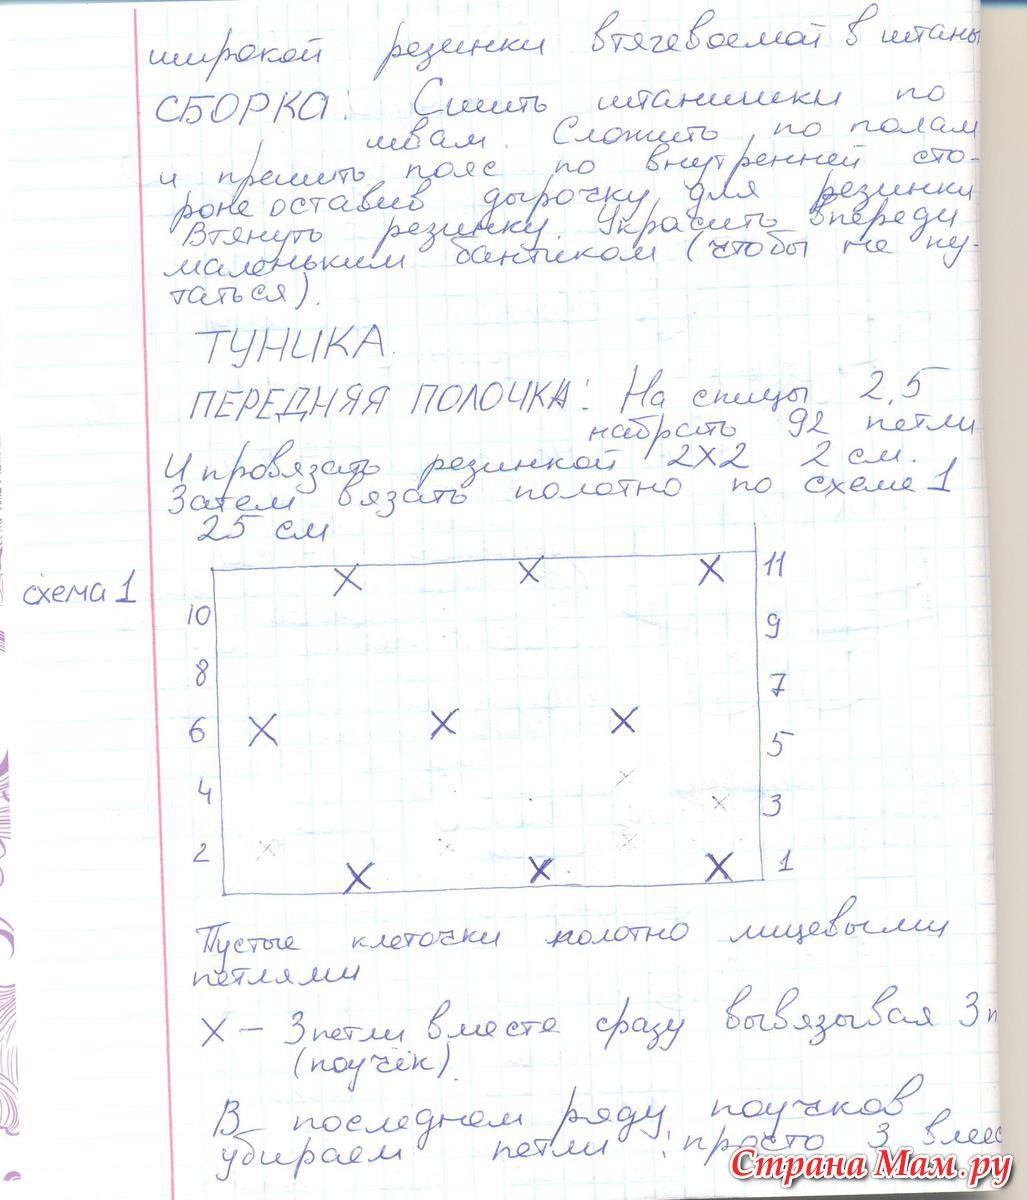 широкой резинки втягеваемой в штаны
СБОРКА: Сшить штанишки по
швам. Сложить по полам
и прешить пояс по внутренней сто-
роне оставив дырочку для резинки
Втянуть резинку. Украсить впереди
маленьким бантиком (чтобы не пу-
таться).
ТУНИКА.
ПЕРЕДНЯЯ ПОЛОЧКА: На спицы 2,5
набрать 92 петли
И провязать резинкой 2х2 2 см.
Затем вязать полотно по схеме 1
25 см
схема 1
X X X 11
10
9
8
7
6 X X X
5
4
3
2
X X X 1
Пустые клеточки полотно лицевыми
петлями
X – 3 петли вместе сразу вывязывая 3 п
(поучёк).
В последнем ряду поучков
убираем петли: просто 3 вмес
Страна Мам.ру